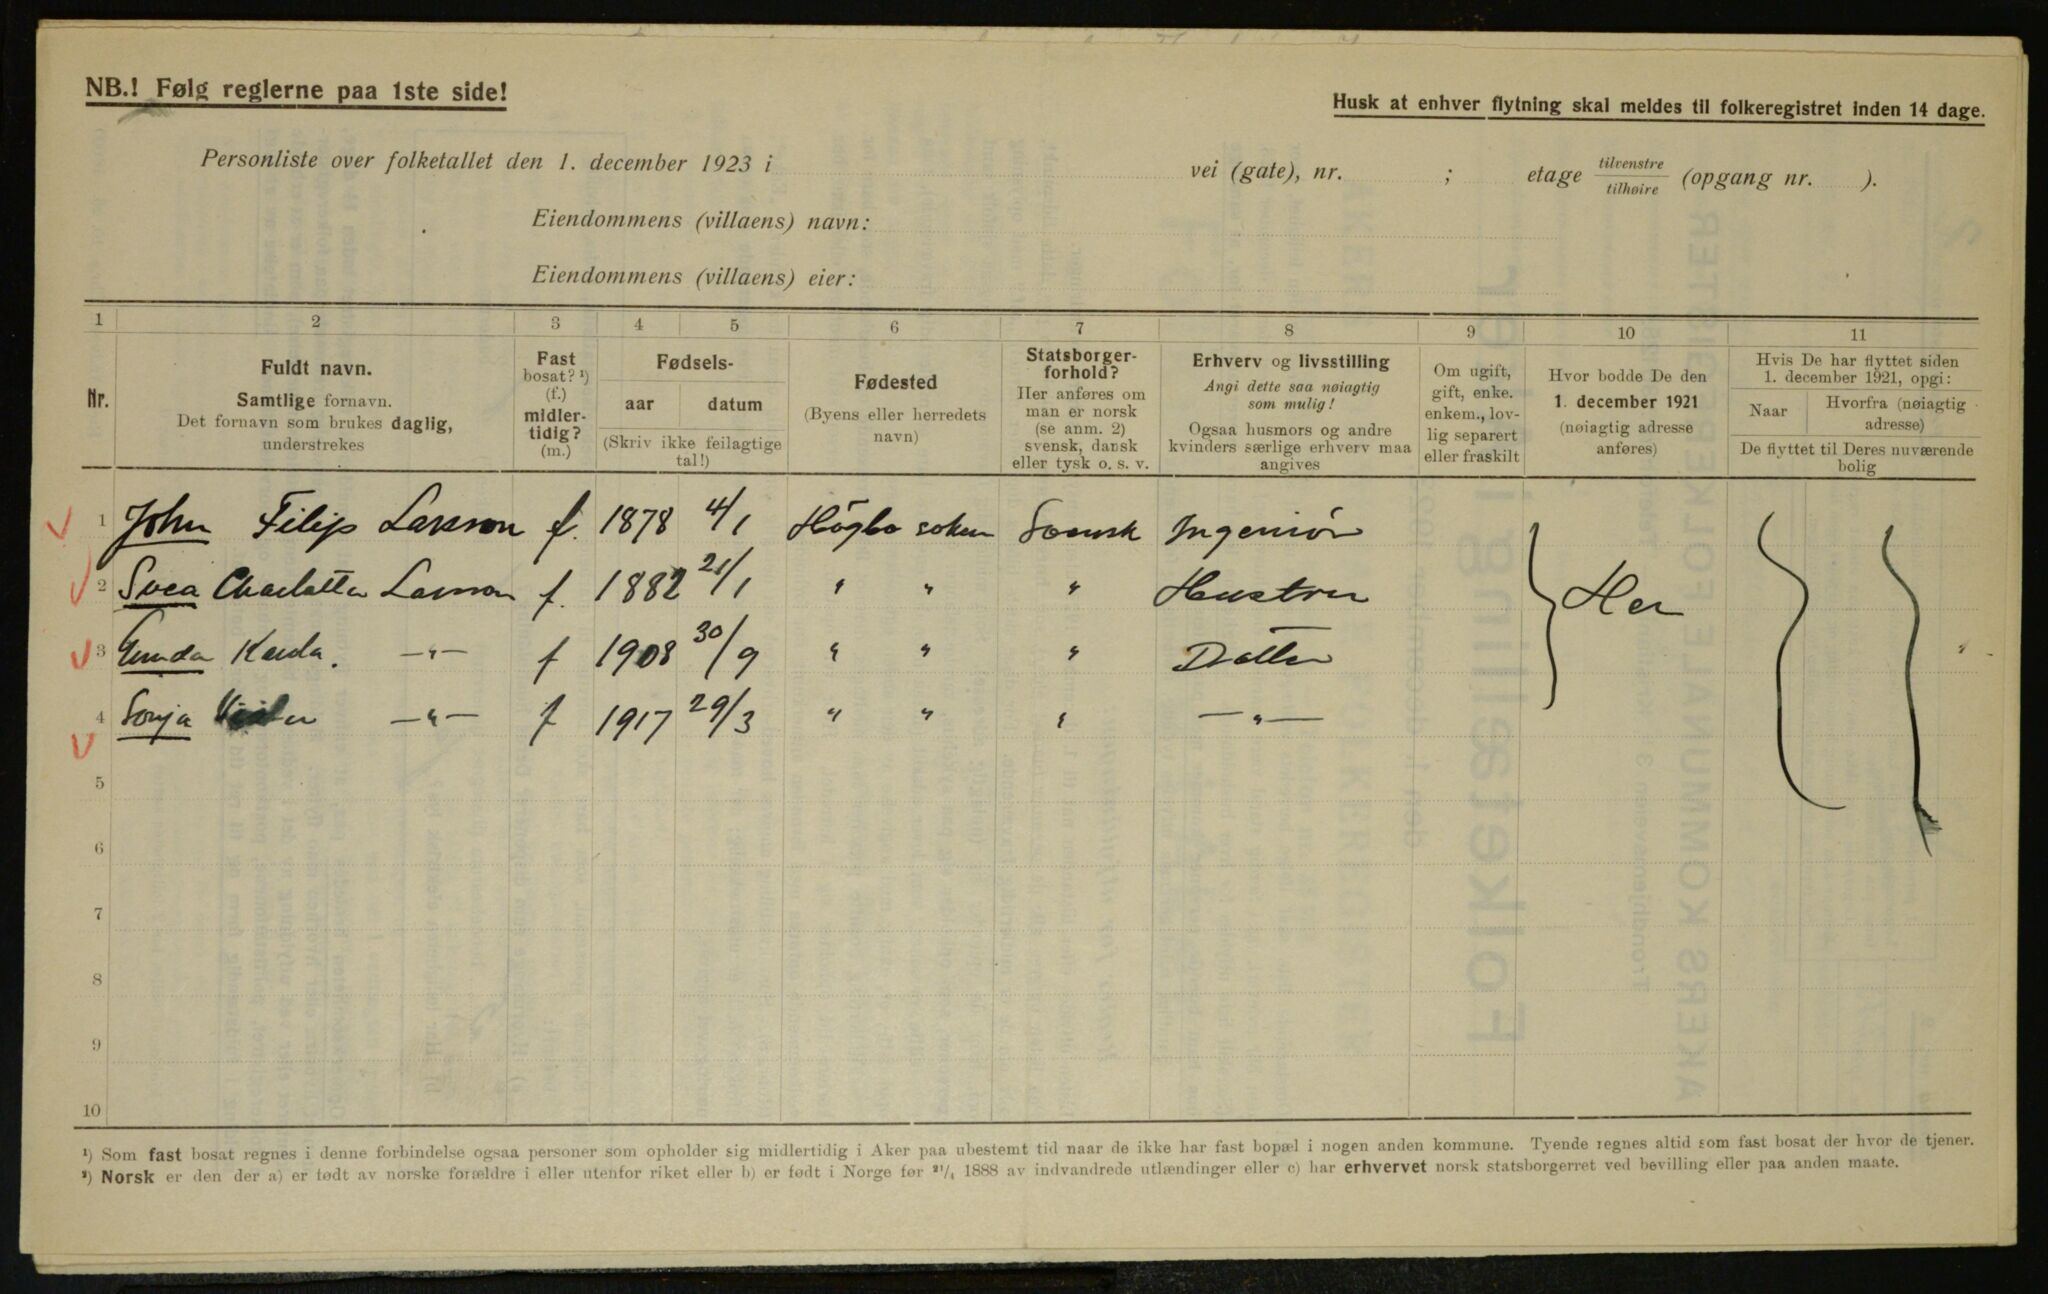 NB.! Følg reglerne paa 1ste side!
Husk at enhver flytning skal meldes til folkeregistret inden 14 dage.
Personliste over folketallet den 1. december 1923 i vei (gate), nr. ; etage tilvenstre / tilhøire (opgang nr. ).
Eiendommens (villaens) navn:
Eiendommens (villaens) eier:
1 2 3 4 5 6 7 8 9 10 11
Nr.
Fuldt navn.
Samtlige fornavn.
Det fornavn som brukes daglig,
understrekes
Fast
bosat? ¹)
(f.)
midler-
tidig?
(m.)
Fødsels-
aar datum
(Skriv ikke feilagtige
tal!)
Fødested
(Byens eller herredets
navn)
Statsborger-
forhold?
Her anføres om
man er norsk
(se anm. 2)
svensk, dansk
eller tysk o. s. v.
Erhverv og livsstilling
Angi dette saa nøiagtig
som mulig!
Ogsaa husmors og andre
kvinders særlige erhverv maa
angives
Om ugift,
gift, enke.
enkem., lov-
lig separert
eller fraskilt
Hvor bodde De den
1. december 1921
(nøiagtig adresse
anføres)
Hvis De har flyttet siden
1. december 1921, opgi:
Naar
Hvorfra (nøiagtig
adresse)
De flyttet til Deres nuværende
bolig
1 John Filip Larsson f. 1878 4/1 Högbo soken Svensk Ingeniør
2 Svea Charlotta Larsson f. 1882 21/1 " " " Hustru Her
3 Gunda Karla. —"— f 1908 30/9 " " " Datter
4 Sonja —"— f 1917 29/3 " " " —"—
5
6
7
8
9
10
¹) Som fast bosat regnes i denne forbindelse ogsaa personer som opholder sig midlertidig i Aker paa ubestemt tid naar de ikke har fast bopæl i nogen anden kommune. Tyende regnes altid som fast bosat der hvor de tjener.
²) Norsk er den der a) er født av norske forældre i eller utenfor riket eller b) er født i Norge før 21/4 1888 av indvandrede utlændinger eller c) har erhvervet norsk statsborgerret ved bevilling eller paa anden maate.